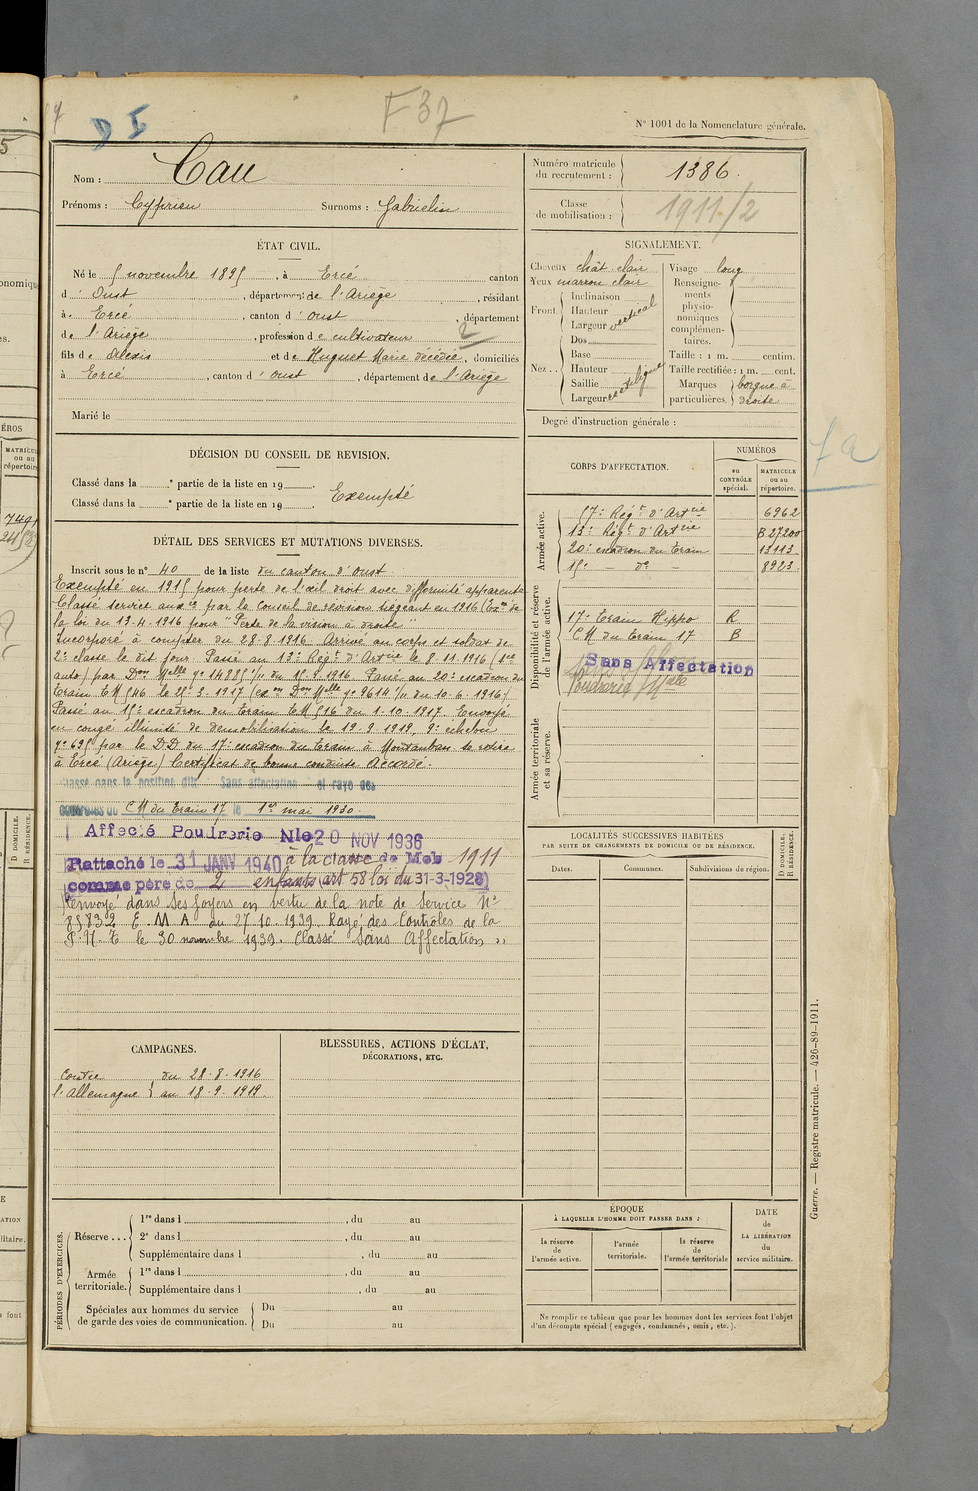 D I
F 37
N° 1001 de la Nomenclature générale.
Nom : Cau
Prénoms : Cyprien Surnoms : Gabrielin
Numéro matricule du recrutement : 1386.
Classe de mobilisation : 1911/2
ÉTAT CIVIL.
Né le 5 novembre 1895, à Ercé canton
d'Oust, département de l'Ariège, résidant
à Ercé, canton d'Oust, département
de l'Ariège, profession de cultivateur 2
fils de Alexis et de Huguet Marie décédée, domiciliés
à Ercé, canton d'Oust, département de l'Ariège
Marié le
SIGNALEMENT.
Cheveux chât. clair Visage long
Yeux marron clair Renseigne-
Front. Inclinaison ments
Hauteur vertical physio-
Largeur nomiques
Dos complémen-
Nez.. Base taires.
Hauteur rectiligne Taille : 1 m. centim.
Saillie Taille rectifiée : 1 m. cent.
Largeur Marques particulières. borgne à droite
Degré d'instruction générale :
DÉCISION DU CONSEIL DE REVISION.
Classé dans la e partie de la liste en 19 .
Classé dans la e partie de la liste en 19 . Exempté
DÉTAIL DES SERVICES ET MUTATIONS DIVERSES.
Inscrit sous le n° 40 de la liste du canton d'Oust
Exempté en 1915 pour perte de l'œil droit avec difformité apparente
Classé service auxre par le Conseil de révision siégeant en 1916 (Exon de
la loi du 19.4.1916 pour "Perte de la vision à droite"
Incorporé à compter du 28.8.1916. Arrivé au corps et soldat de
2e classe le dit jour. Passé au 13e Régt d'Artrie le 8.11.1916 (
auto) par Don Melle n° 14885 1/11 du 15.9.1916. Passé au 20e escadron du
Train EM 546 le 25.3.1917 (exon Don Melle n° 9614 1/11 du 10.6.1916)
Passé au 15e escadron du Train EM 516 du 1.10.1917. Envoyé
en congé illimité de démobilisation le 19.9.1919, 9e échelon
n° 695 par le DD du 17e escadron du Train à Montauban. Se retire
à Ercé (Ariège) Certificat de bonne conduite Accordé.
Classé dans la position dite Sans affectation et rayé des
contrôles du CM du Train 17 le 1er mai 1930.
Affecté Poudrerie Nle 20 NOV 1936
Rattaché le 31 JANV 1940 à la classe de Mob 1911
comme père de 2 enfants (art 58 loi du 31-3-1928)
Renvoyé dans ses foyers en vertu de la note de Service N°
85832 E.M.A du 27.10.1939. Rayé des Contrôles de la
P.N.T le 30 novembre 1939. Classé "Sans Affectation"
CORPS D'AFFECTATION.
NUMÉROS
au CONTRÔLE spécial.
MATRICULE ou au répertoire.
Armée active.
57e Régt d'Artrie 6962
13e Régt d'Artrie B 27200
20e escadron du Train 13113
15e — do — 8923
Disponibilité et réserve de l'armée active.
17e Train Hippo R
CM du Train 17 B
Sans Affectation
Poudrerie Nale
Armée territoriale et sa réserve.
7a
LOCALITÉS SUCCESSIVES HABITÉES
PAR SUITE DE CHANGEMENTS DE DOMICILE OU DE RÉSIDENCE.
Dates. Communes. Subdivisions de région. D DOMICILE. R RÉSIDENCE.
CAMPAGNES.
Contre l'Allemagne } du 28.8.1916
au 18.9.1919
BLESSURES, ACTIONS D'ÉCLAT,
DÉCORATIONS, ETC.
PÉRIODES D'EXERCICES.
Réserve ... 1re dans l , du au
2e dans l , du au
Supplémentaire dans l , du au
Armée territoriale. 1re dans l , du au
Supplémentaire dans l , du au
Spéciales aux hommes du service
de garde des voies de communication. Du au
Du au
ÉPOQUE
À LAQUELLE L'HOMME DOIT PASSER DANS :
la réserve de l'armée active.
l'armée territoriale.
la réserve de l'armée territoriale
DATE de LA LIBÉRATION du service militaire.
Ne remplir ce tableau que pour les hommes dont les services font l'objet
d'un décompte spécial (engagés, condamnés, omis, etc.).
Guerre. — Registre matricule. — 426-89-1911.